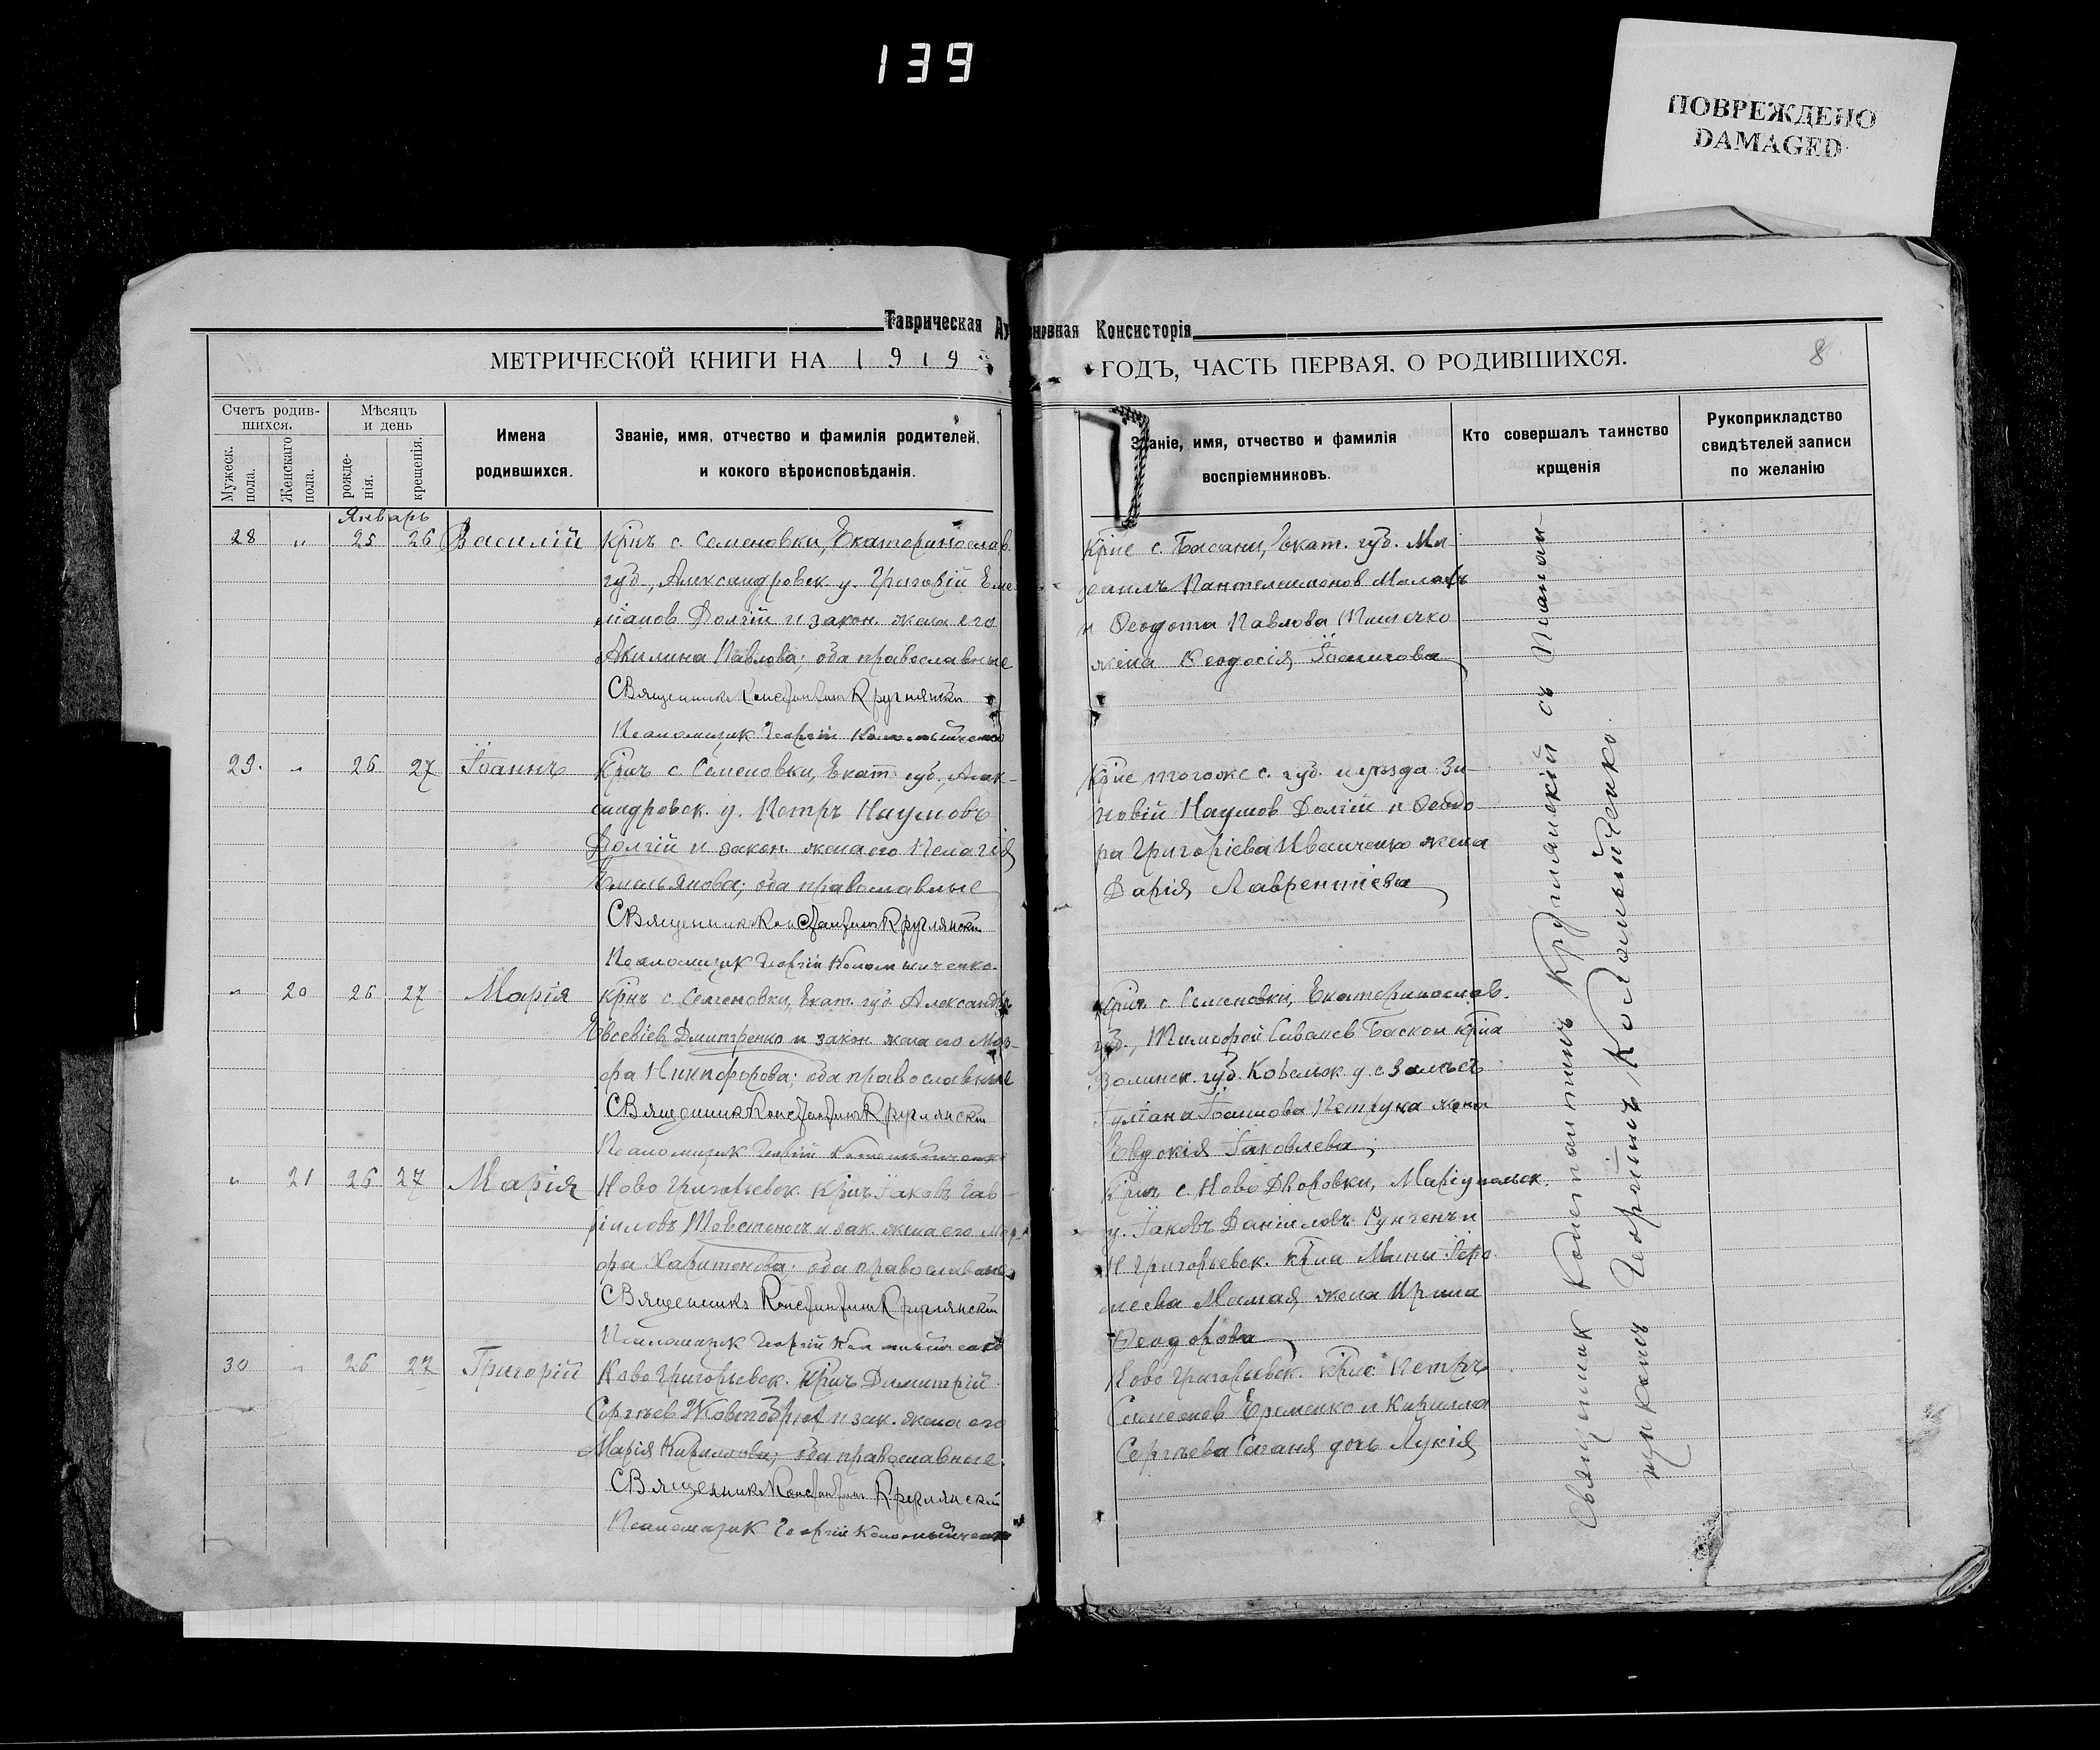 139
ПОВРЕЖДЕНО
DAMAGED
Таврическая Духовная Консисторія
МЕТРИЧЕСКОЙ КНИГИ НА 1919
ГОДЪ, ЧАСТЬ ПЕРВАЯ. О РОДИВШИХСЯ.
8
Счетъ родив-
шихся.
Мужеск.
пола.
Женскаго
пола.
Мѣсяцъ
и день
рожде-
нія.
крещенія.
Имена
родившихся.
Званіе, имя, отчество и фамилія родителей,
и кокого вѣроисповѣданія.
Званіе, имя, отчество и фамилія
воспріемниковъ.
Кто совершалъ таинство
крщенія
Рукоприкладство
свидѣтелей записи
по желанію
Январь
28 " 25 26 Василій Крнъ с. Семеновки, Екатеринослав.
губ., Александровск. у. Григорій Еме-
ліанов Долгій и закон. жена его
Акилина Павлова; оба православные
Священникъ Константинъ Круглянскій
Псаломщик Георгій Коломыйченко
Крне с. Басани, Екат. губ. Ми-
хаилъ Пантелеимонов
и Феодота Павлова
жена Феодосія Іоаннова
29. " 26 27 Іоаннъ Крнъ с. Семеновки, Екат. губ., Алек-
сандровск. у. Петръ Наумовъ
Долгій и закон. жена его Пелагія
Емельянова; оба православные
Священникъ Константинъ Круглянскій
Псаломщик Георгій Коломыйченко
Крне тогоже с. губ. и уѣзда Зи-
новій Наумов Долгій и Феодо-
ра Григоріева Иванченко жена
Дарія Лаврентіева
" 20 26 27 Марія Крнъ с. Семеновки, Екат. губ. Александръ
Евсевіев Дмитренко и закон. жена его Мар-
фа Никифорова; оба православные
Священникъ Константинъ Круглянскій
Псаломщик Георгій Коломыйченко
Крнъ с. Семеновки, Екатеринослав.
губ., Тимофей Баскол крна
Волынск. губ. Ковельск. у. с
Іуліана Іоаннова Петрука жена
Евдокія Іаковлева;
" 21 26 27 Марія Ново Григорьевск. крнъ Іаковъ Гав-
ріиловъ и зак. жена его Мар-
фа Харитонова; оба православные
Священникъ Константинъ Круглянскій
Псаломщик Георгій Коломыйченко
Крнъ с. Ново Дворовки, Маріупольск.
у. Іаковъ Даніиловъ и
Н Григорьевск. крна
Мамая жена Ирина
Феодорова
30 " 26 27 Григорій Ново Григорьевск. крнъ Димитрій
Сергѣев Жовтобрюх и зак. жена его
Марія Кириллова; оба православные.
Священникъ Константинъ Круглянскій
Псаломщик Георгій Коломыйченко
Ново Григорьевск. крне Петръ
Симеонов Еременко и Кирилла
Сергѣева дочь Лукія
Священник Константинъ Круглянскій съ Псалом-
щикомъ Георгіемъ Коломыйченко.